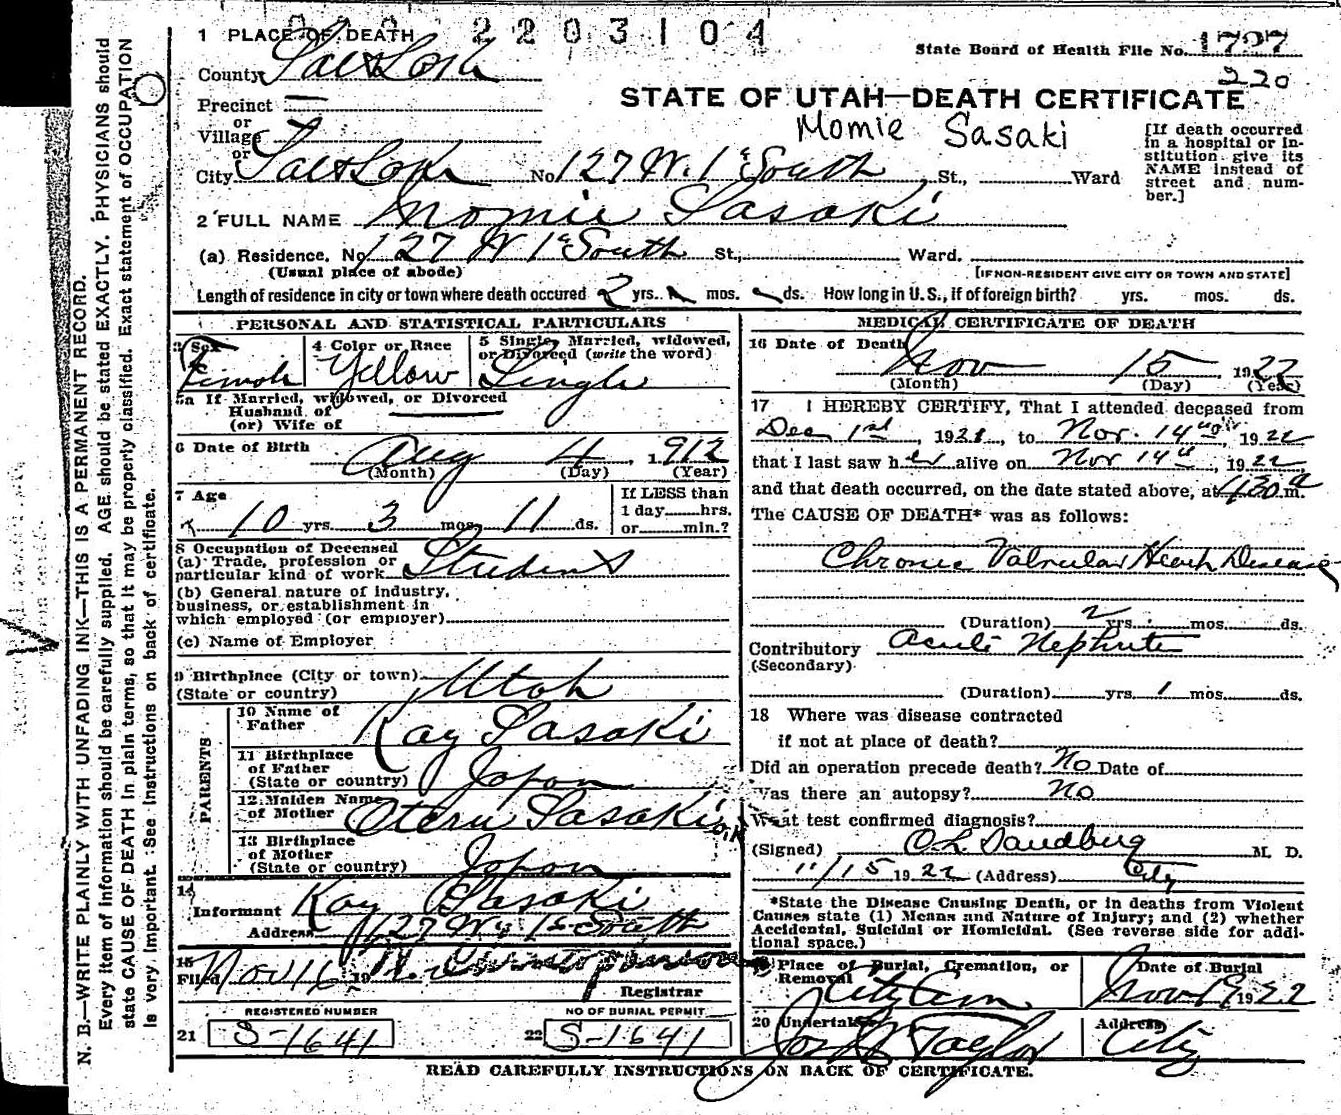 2203104
1 PLACE OF DEATH
State Board of Health File No. 1727
220
County Salt Lake
Precinct
or
Village
or
STATE OF UTAH—DEATH CERTIFICATE
Momie Sasaki
[If death occurred in a hospital or institution give its NAME instead of street and number.]
City Salt Lake No 127 W. 1st South St., Ward
2 FULL NAME Momie Sasaki
(a) Residence. No 127 W 1st South St., Ward.
(Usual place of abode) [IF NON-RESIDENT GIVE CITY OR TOWN AND STATE]
Length of residence in city or town where death occured 2 yrs. mos. ds. How long in U. S., if of foreign birth? yrs. mos. ds.
PERSONAL AND STATISTICAL PARTICULARS
3 Sex 4 Color or Race 5 Single, Married, widowed,
or Divorced (write the word)
Female Yellow Single
5a If Married, widowed, or Divorced
Husband of
(or) Wife of
6 Date of Birth Aug 4, 1912
(Month) (Day) (Year)
7 Age If LESS than
10 yrs. 3 mos. 11 ds. 1 day hrs.
or min.?
8 Occupation of Deceased
(a) Trade, profession or
particular kind of work Student
(b) General nature of industry,
business, or establishment in
which employed (or employer)
(c) Name of Employer
9 Birthplace (City or town)
(State or country) Utah
PARENTS
10 Name of
Father Kay Sasaki
11 Birthplace
of Father
(State or country) Japan
12 Maiden Name
of Mother Oteru Sasaki
13 Birthplace
of Mother
(State or country) Japan
14
Informant Kay Sasaki
Address 127 W. 1st South
15
Filed Nov 16 19
Registrar
REGISTERED NUMBER NO OF BURIAL PERMIT
21 S-1641 22 S-1641
MEDICAL CERTIFICATE OF DEATH
16 Date of Death Nov 15 1922
(Month) (Day) (Year)
17 I HEREBY CERTIFY, That I attended deceased from
Dec 1st, 1921, to Nov. 14, 1922
that I last saw her alive on Nov 14, 1922
and that death occurred, on the date stated above, at 430 a m.
The CAUSE OF DEATH* was as follows:
Chronic Valvular Heart Disease
(Duration) 2 yrs. mos. ds.
Contributory Acute Nephritis
(Secondary)
(Duration) yrs. 1 mos. ds.
18 Where was disease contracted
if not at place of death?
Did an operation precede death? No Date of
Was there an autopsy? No
What test confirmed diagnosis?
(Signed) O L Sandberg M. D.
11/15 1922 (Address) City
*State the Disease Causing Death, or in deaths from Violent
Causes state (1) Means and Nature of Injury; and (2) whether
Accidental, Suicidal or Homicidal. (See reverse side for addi-
tional space.)
19 Place of Burial, Cremation, or Date of Burial
Removal City Cem Nov 19 1922
20 Undertaker Address
Taylor City
READ CAREFULLY INSTRUCTIONS ON BACK OF CERTIFICATE.
N. B.—WRITE PLAINLY WITH UNFADING INK—THIS IS A PERMANENT RECORD.
Every item of information should be carefully supplied. AGE should be stated EXACTLY. PHYSICIANS should
state CAUSE OF DEATH in plain terms, so that it may be properly classified. Exact statement of OCCUPATION
is very important. See instructions on back of certificate.